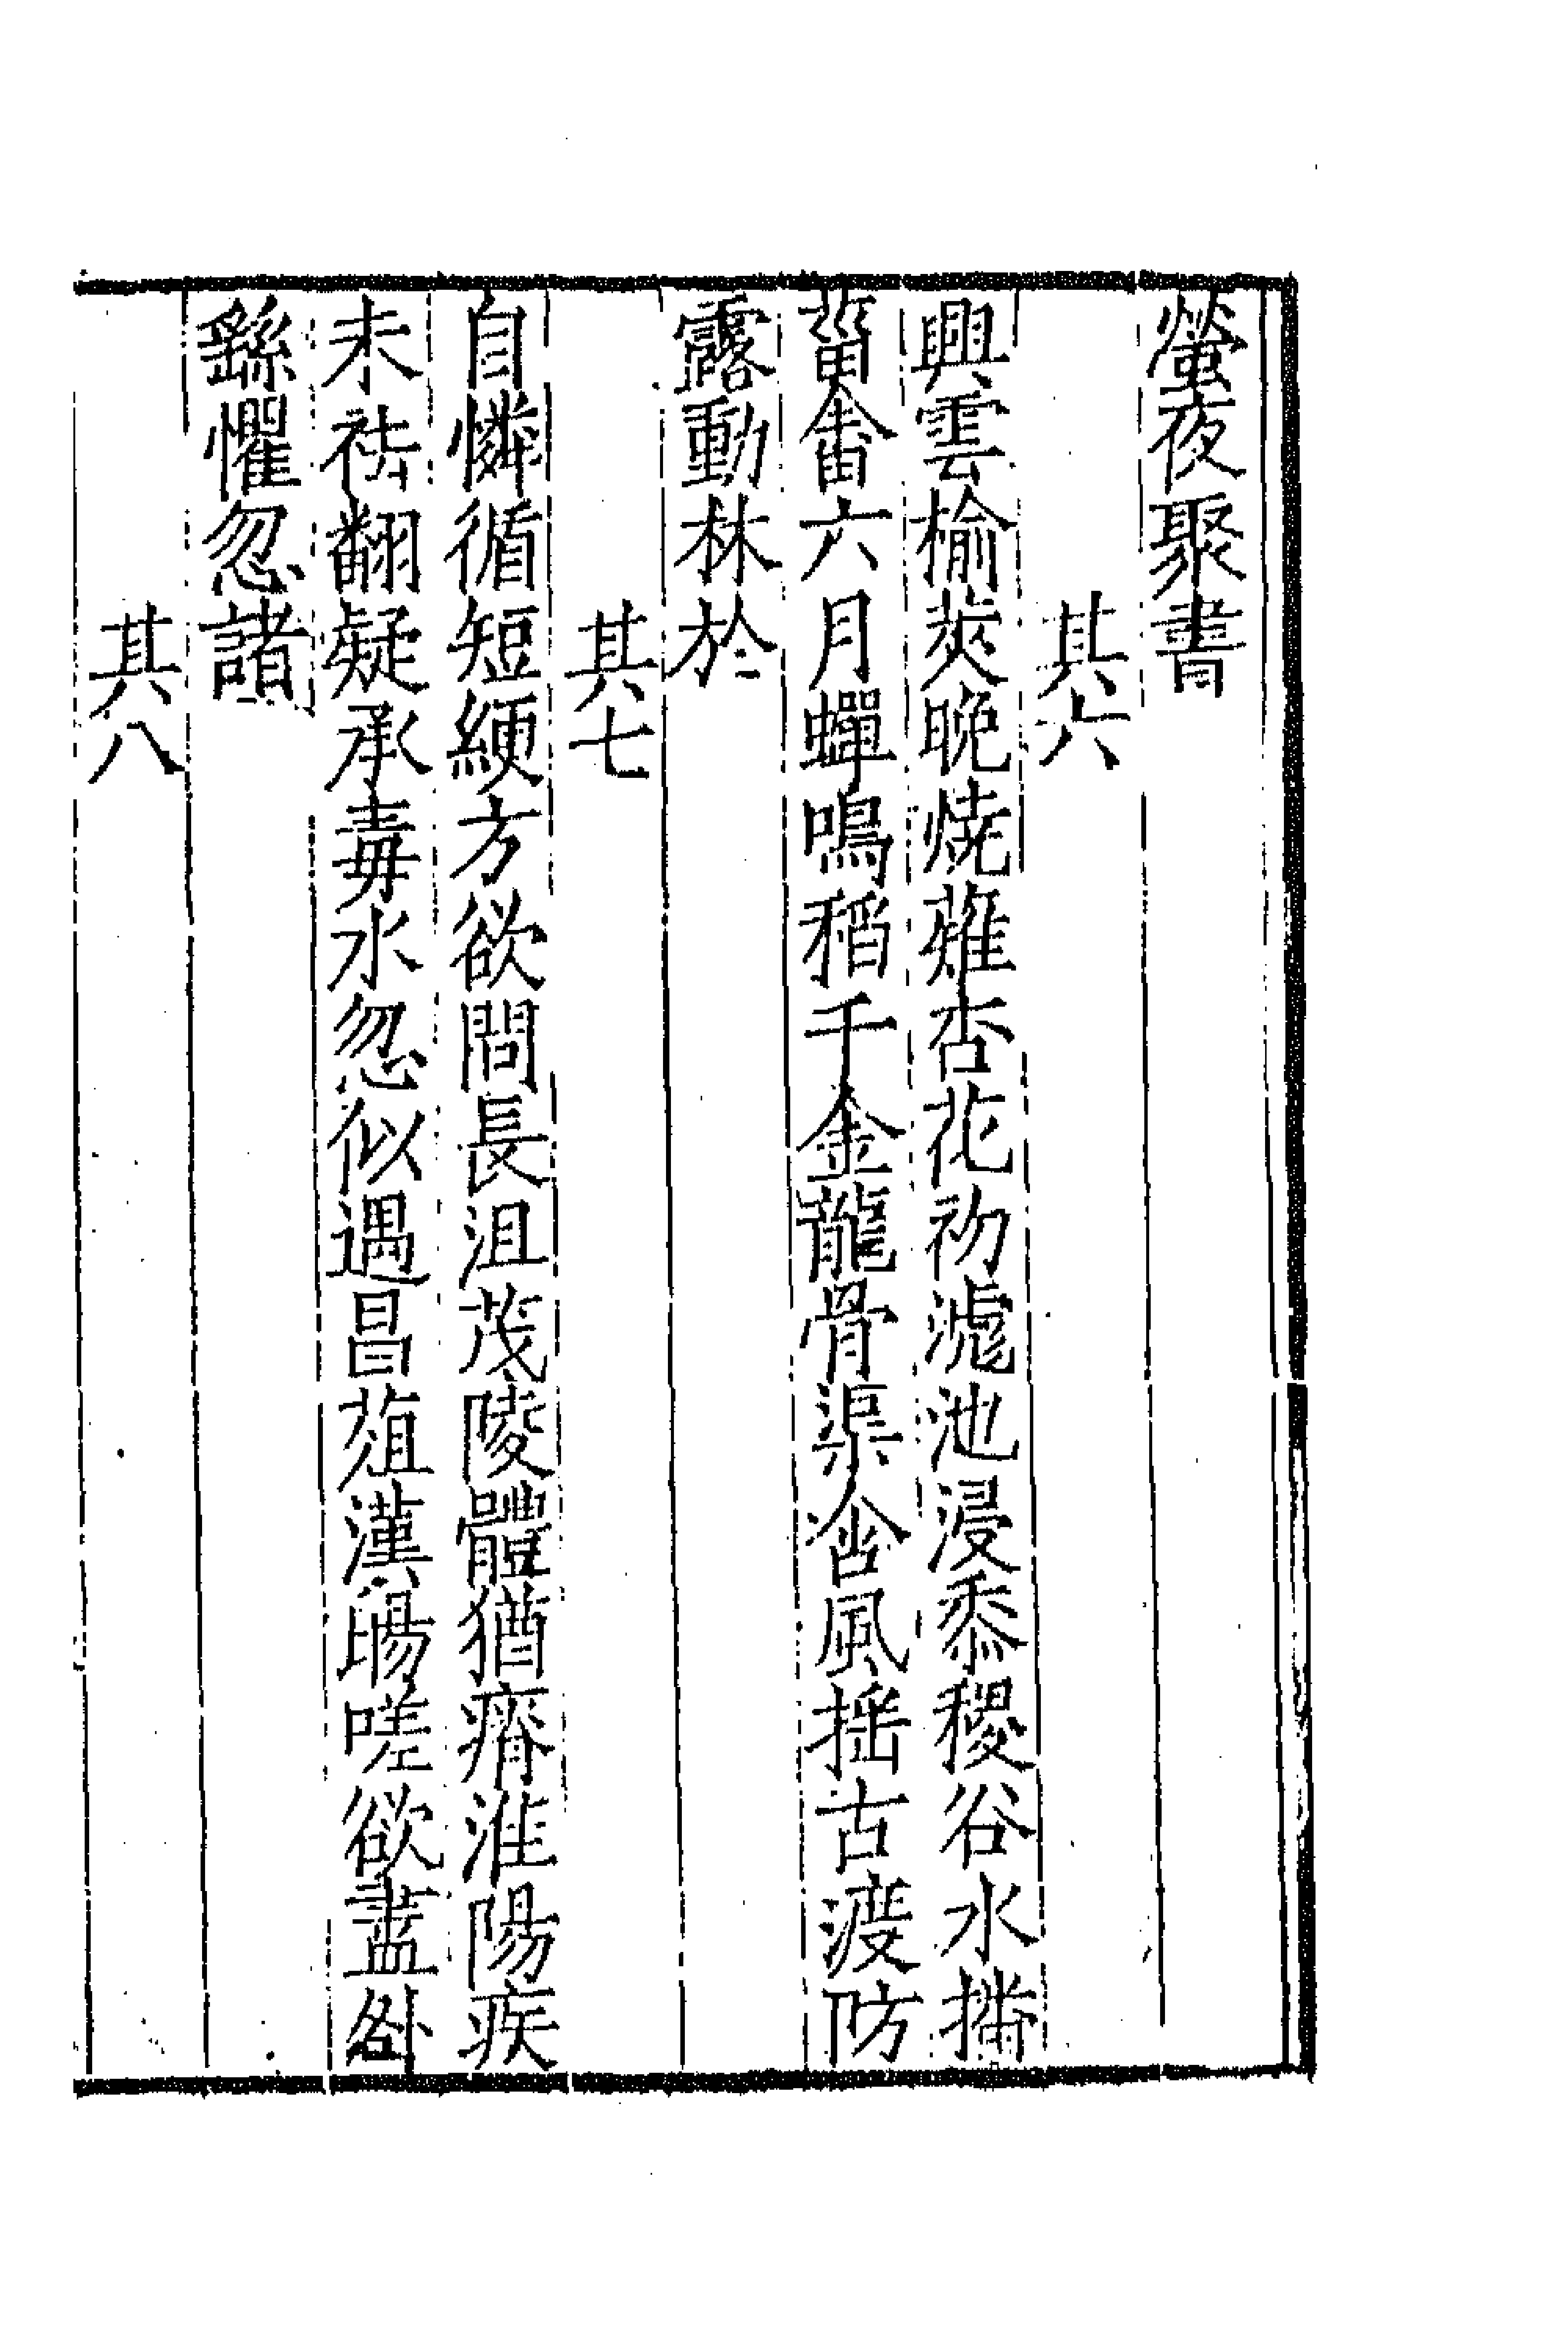 螢夜聚書
其六
興雲榆莢晚燒薙杏花初滮池浸黍稷谷水播
菑畬六月蟬鳴稻千金龍骨渠含風搖古渡防
露動林於
其七
自憐循短綆方欲間長沮茂陵體猶瘠淮陽疾
未祛翻疑承毒水忽似遇昌葅漢陽嗟欲盡咎
繇懼忽諸
其八